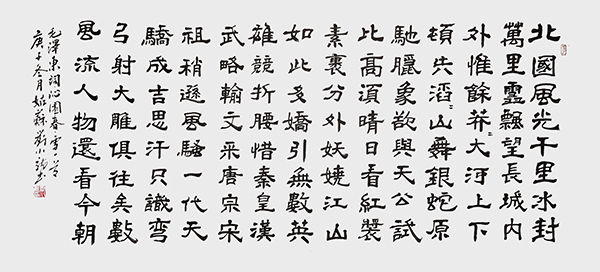 北國風光千里氷封
萬里雪飄望長城內
外惟餘莽〻大河上下
頓失滔〻山舞銀蛇原
馳臘象欲與天公試
比高須晴日看紅裝
素裹分外妖嬈江山
如此多嬌引無數英
雄競折腰惜秦皇漢
武略輸文采唐宗宋
祖稍遜風騷一代天
驕成吉思汗只識彎
弓射大雕俱往矣數
風流人物還看今朝
毛澤東詞沁園春雪一首
庚子月姑蘇劉小書